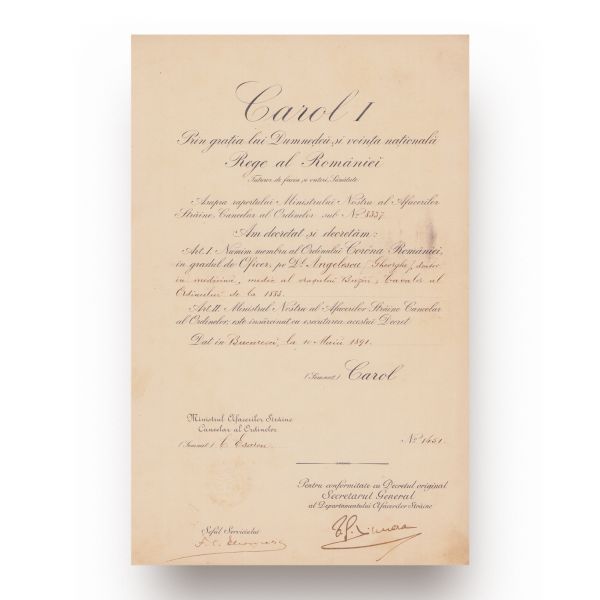 Carol I
Prin grația lui Dumnedeŭ și voința națională
Rege al României
Tuturor de faciă și viitori, Sănătate
Asupra raportului Ministrului Nostru al Afacerilor
Străine, Cancelar al Ordinelor sub No. 8357
Am decretat și decretăm:
Art. I. Numim membru al Ordinului Coróna României,
în gradul de Oficer, pe Dl. Angelescu Gheorghe, doctor
în medicină, medic al orașului Buzĕŭ, Cavaler al
Ordinului de la 1883.
Art. II. Ministrul Nostru al Afacerilor Străine Cancelar
al Ordinelor, este însărcinat cu esecutarea acestui Decret
Dat în Bucuresci, la 10 Maiŭ 1891.
(Semnat) Carol
Ministrul Afacerilor Străine
Cancelar al Ordinelor
(Semnat) C. Esarcu
No. 1651
Pentru conformitate cu Decretul original
Secretarul General
al Departamentului Afacerilor Străine
Șeful Serviciului